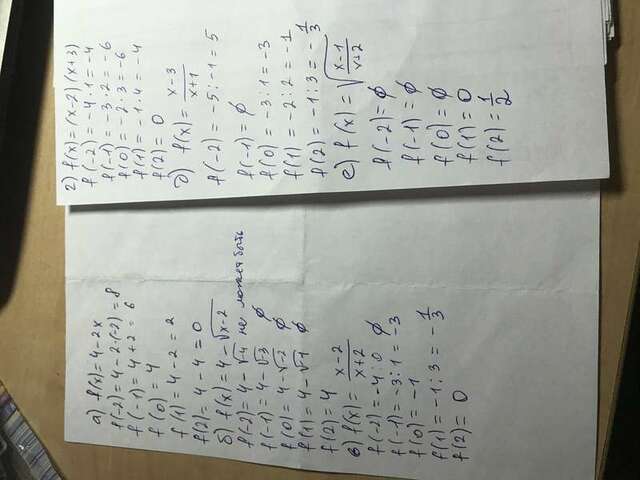 а) f(x) = 4 - 2x
f(-2) = 4 - 2·(-2) = 8
f(-1) = 4 + 2 = 6
f(0) = 4
f(1) = 4 - 2 = 2
f(2) = 4 - 4 = 0
б) f(x) = 4 - √(x-2)
f(-2) = 4 - √-4 не может быть
f(-1) = 4 - √-3 ∅
f(0) = 4 - √-2 ∅
f(1) = 4 - √-1 ∅
f(2) = 4
в) f(x) = (x-2)/(x+2)
f(-2) = -4 : 0 ∅
f(-1) = -3 : 1 = -3
f(0) = -1
f(1) = -1 : 3 = -1/3
f(2) = 0
г) f(x) = (x-2) (x+3)
f(-2) = -4 · 1 = -4
f(-1) = -3 · 2 = -6
f(0) = -2 · 3 = -6
f(1) = -1 · 4 = -4
f(2) = 0
д) f(x) = (x-3)/(x+1)
f(-2) = -5 : -1 = 5
f(-1) = ∅
f(0) = -3 : 1 = -3
f(1) = -2 : 2 = -1
f(2) = -1 : 3 = -1/3
е) f(x) = √((x-1)/(x+2))
f(-2) = ∅
f(-1) = ∅
f(0) = ∅
f(1) = 0
f(2) = 1/2